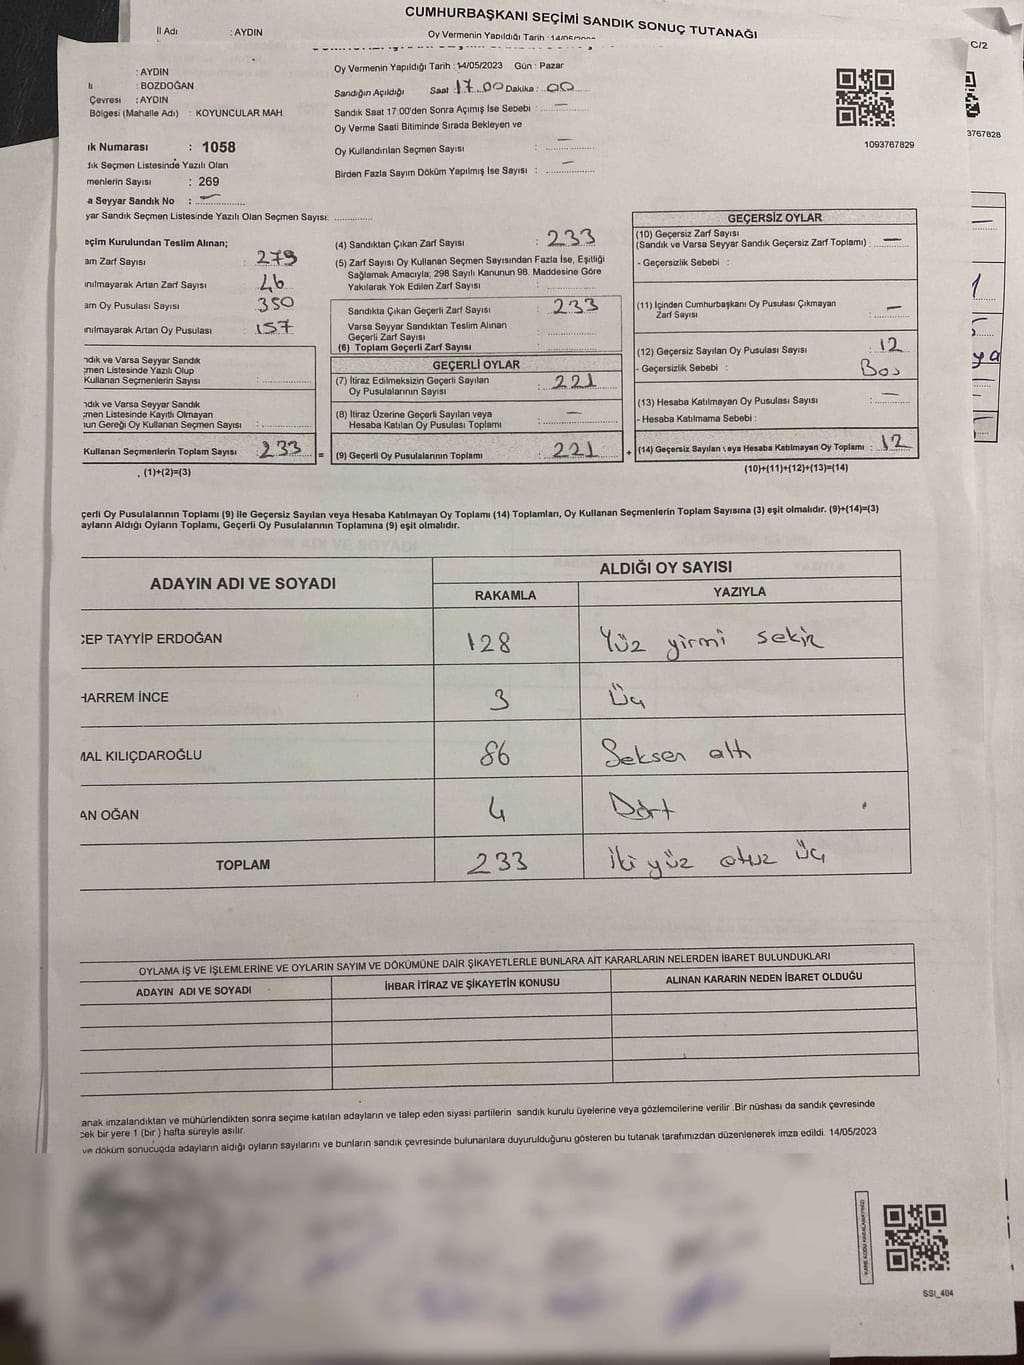 CUMHURBAŞKANI SEÇİMİ SANDIK SONUÇ TUTANAĞI
İl Adı : AYDIN
Oy Vermenin Yapıldığı Tarih :
C/2
3767828
: AYDIN
: BOZDOĞAN
Çevresi : AYDIN
Bölgesi (Mahalle Adı) : KOYUNCULAR MAH.
Oy Vermenin Yapıldığı Tarih : 14/05/2023 Gün : Pazar
Sandığın Açıldığı Saat : 17.00 Dakika : 00
Sandık Saat 17:00'den Sonra Açımış İse Sebebi : —
Oy Verme Saati Bitiminde Sırada Bekleyen ve
Oy Kullandırılan Seçmen Sayısı : —
Birden Fazla Sayım Döküm Yapılmış İse Sayısı : —
1093767829
ık Numarası : 1058
dık Seçmen Listesinde Yazılı Olan
menlerin Sayısı : 269
a Seyyar Sandık No : —
yar Sandık Seçmen Listesinde Yazılı Olan Seçmen Sayısı:
eçim Kurulundan Teslim Alınan;
am Zarf Sayısı : 279
ınılmayarak Artan Zarf Sayısı : 46
am Oy Pusulası Sayısı : 350
ınılmayarak Artan Oy Pusulası : 157
ndık ve Varsa Seyyar Sandık
çmen Listesinde Yazılı Olup
Kullanan Seçmenlerin Sayısı :
ndık ve Varsa Seyyar Sandık
çmen Listesinde Kayıtlı Olmayan
nun Gereği Oy Kullanan Seçmen Sayısı :
Kullanan Seçmenlerin Toplam Sayısı : 233 =
. (1)+(2)=(3)
(4) Sandıktan Çıkan Zarf Sayısı : 233
(5) Zarf Sayısı Oy Kullanan Seçmen Sayısından Fazla İse, Eşitliği
Sağlamak Amacıyla; 298 Sayılı Kanunun 98. Maddesine Göre
Yakılarak Yok Edilen Zarf Sayısı :
Sandıkta Çıkan Geçerli Zarf Sayısı : 233
Varsa Seyyar Sandıktan Teslim Alınan
Geçerli Zarf Sayısı :
(6) Toplam Geçerli Zarf Sayısı :
GEÇERLİ OYLAR
(7) İtiraz Edilmeksizin Geçerli Sayılan
Oy Pusulalarının Sayısı : 221
(8) İtiraz Üzerine Geçerli Sayılan veya
Hesaba Katılan Oy Pusulası Toplamı : —
(9) Geçerli Oy Pusulalarının Toplamı : 221 +
GEÇERSİZ OYLAR
(10) Geçersiz Zarf Sayısı
(Sandık ve Varsa Seyyar Sandık Geçersiz Zarf Toplamı) : —
- Geçersizlik Sebebi :
(11) İçinden Cumhurbaşkanı Oy Pusulası Çıkmayan
Zarf Sayısı : —
(12) Geçersiz Sayılan Oy Pusulası Sayısı : 12
- Geçersizlik Sebebi : Boş
(13) Hesaba Katılmayan Oy Pusulası Sayısı : —
- Hesaba Katılmama Sebebi :
(14) Geçersiz Sayılan veya Hesaba Katılmayan Oy Toplamı : 12
(10)+(11)+(12)+(13)=(14)
çerli Oy Pusulalarının Toplamı (9) ile Geçersiz Sayılan veya Hesaba Katılmayan Oy Toplamı (14) Toplamları, Oy Kullanan Seçmenlerin Toplam Sayısına (3) eşit olmalıdır. (9)+(14)=(3)
ayların Aldığı Oyların Toplamı, Geçerli Oy Pusulalarının Toplamına (9) eşit olmalıdır.
ADAYIN ADI VE SOYADI
ALDIĞI OY SAYISI
RAKAMLA YAZIYLA
CEP TAYYİP ERDOĞAN 128 Yüz yirmi sekiz
HARREM İNCE 3 Üç
MAL KILIÇDAROĞLU 86 Seksen altı
AN OĞAN 4 Dört
TOPLAM 233 İki yüz otuz üç
OYLAMA İŞ VE İŞLEMLERİNE VE OYLARIN SAYIM VE DÖKÜMÜNE DAİR ŞİKAYETLERLE BUNLARA AİT KARARLARIN NELERDEN İBARET BULUNDUKLARI
ADAYIN ADI VE SOYADI İHBAR İTİRAZ VE ŞİKAYETİN KONUSU ALINAN KARARIN NEDEN İBARET OLDUĞU
anak imzalandıktan ve mühürlendikten sonra seçime katılan adayların ve talep eden siyasi partilerin sandık kurulu üyelerine veya gözlemcilerine verilir .Bir nüshası da sandık çevresinde
cek bir yere 1 (bir ) hafta süreyle asılır.
ve döküm sonucuda adayların aldığı oyların sayılarını ve bunların sandık çevresinde bulunanlara duyurulduğunu gösteren bu tutanak tarafımızdan düzenlenerek imza edildi. 14/05/2023
SSI_404